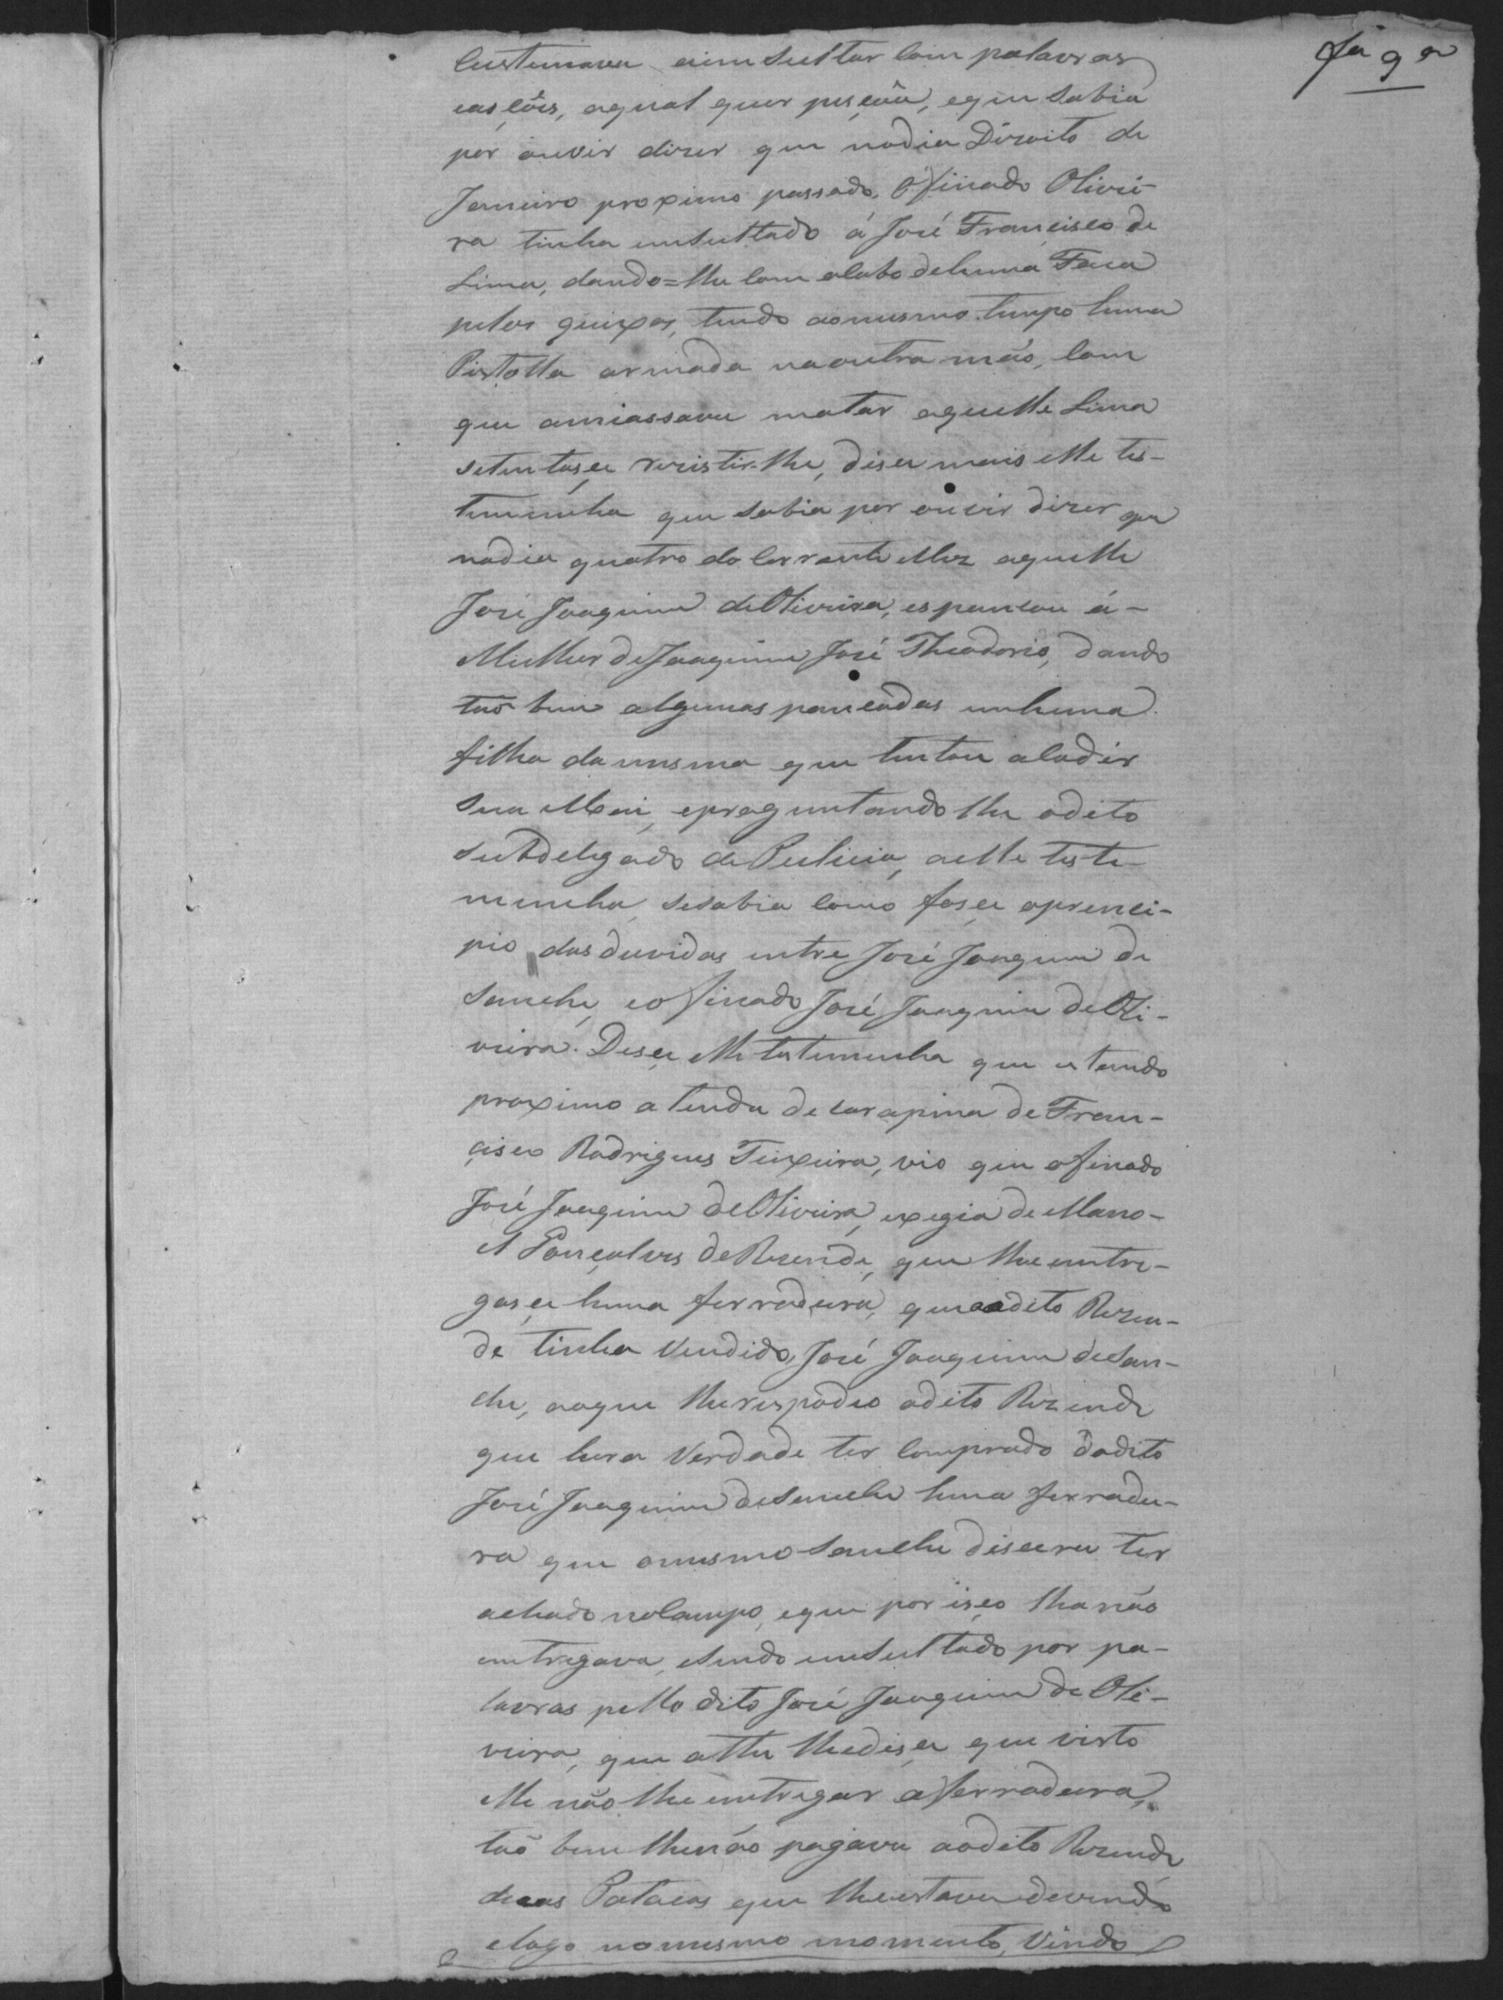 fa 9 a
Custumava aimsultar Com palavras
eas çõis, aqual quer peçoâa, eque Sabia
por ouvir dizer que nodia Dizoito de
Janeiro proximo passado, o finado Olivei-
ra tinha imsultado á José Françisco de
Lima, dando=lhe Com oCabo dehuma Faca
pelos queixos, tendo aomesmo tempo huma
Pistolla armada naoutra mão, Com
que amiassava matar aquelle Lima
setentaçe rezistir-lhe, dise mais elle tes-
temunha que Sabia por ouvir dizer que
nodia quatro do Corrente Mez aquelle
José Joaquim deOliveira, espancou á-
Mulher deJoaquim José Theodorio, dando
taõ bem algumas pancadas emhuma
filha damesma que tentou aCodir
Sua Mai, epreguntando lhe odito
Subdelegado de Pulicia, aelle teste-
munha, seSabia Como foçe oprenci-
pio das duvidas entre José Joaquim de
Sanche, eo finado José Joaquim de Oli-
veira. Dise elle testemunha que estando
proximo a tenda de Carapina de Fran-
çisco Rodrigues Teixeira, vio que ofinado
José Joaquim deOliveira, exegia de Mano-
el Gonçalves deRezende, que lhe entre-
gaçe huma ferradura, que aodito Rezen-
de tinha Vendido, José Joaquim deSan-
che, aoque lherespodeo odito Rezende
que hera Verdade ter Comprado dodito
José Joaquim deSanche huma ferradu-
ra que omesmo Sanche disera ter
achado noCampo, eque por iseo lhanão
entregava, esendo imsultado por pa-
lavras pello dito José Joaquim de Oli-
veira, que athe lhediçe que visto
elle não lhe entregar a ferradura,
taõ bem lhenão pagava aodito Rezende
duas Patacas que lheestava devendo
elogo nomesmo momento, Vindo